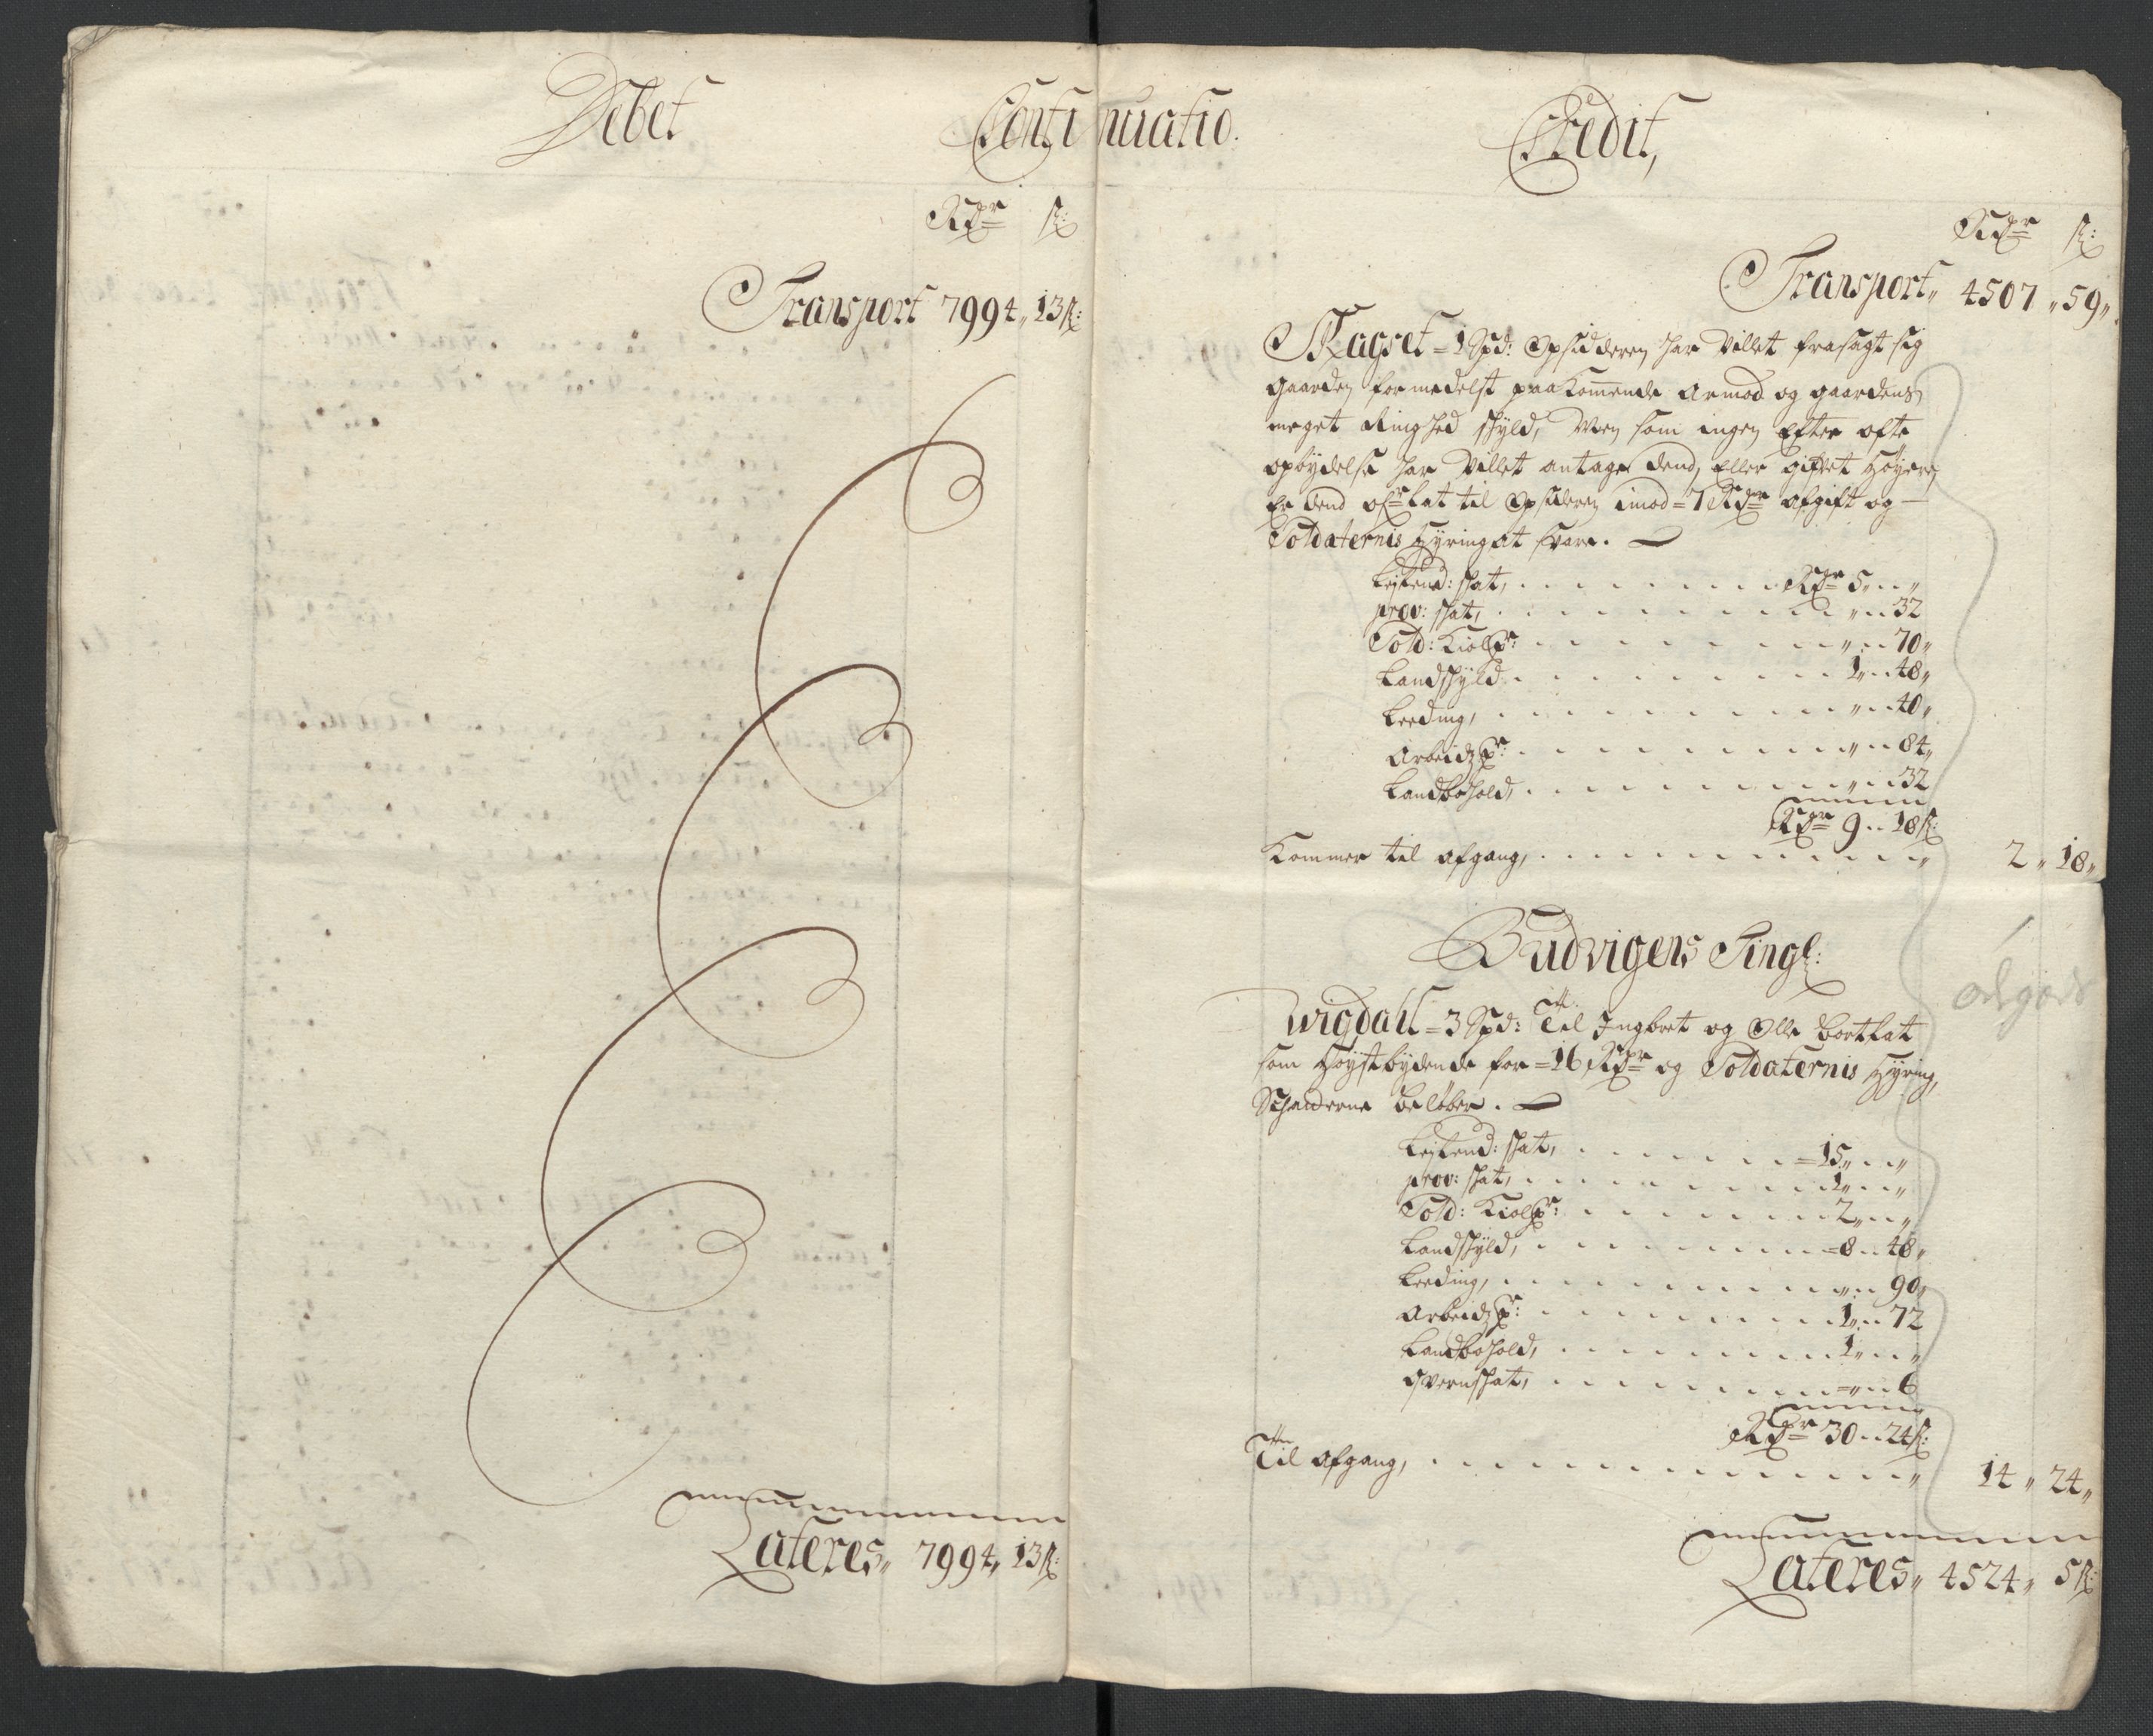 Debet Continuatio. Credit,
Rdr ß:
Transport 7994,, 13 ß:
Lateres,, 7994,, 13 ß:
Rdr ß:
Transport,, 4507 ,, 59 ,,
Skagset = 1 Spd: Opsidderen har villet frasagt sig
gaarden formedelst paakomende armod og gaardens
meget Ringhed skyld, Men som ingen Efter ofte
opbydelse har villet antage dend, Eller gifvet Høyere,
Er dend ofr lat til Opsideren imod = 7 Rdr afgift og
Soldaternis Hyring at svare.
Leilend: skat, . . . Rdr 5 ,, .. ,,
prov: skat, . . . ,, .. 32
Sold: Kiolpr: . . . ,, .. 70 ,,
Landskyld . . . 1 ,, .. 48 ,,
Leeding, . . . ,, .. 40 ,,
Arbeidzpr: . . . ,, .. 84 ,,
Landbohold, . . . ,, .. 32
Rdr 9 .. 18 ß:
Kommer til afgang, . . . 2 ,, 18 ,,
Budvigens Tingl:
Wigdahl = 3 Spd: Til Ingbret og Olle bortlat
som Høystbydende for = 16 Rdr og Soldaternis Hyring,
Schatterne beløber.
Leilend: skat, . . . = 15 ,, .. ,,
prov: skat, . . . 1 ,, .. ,,
Sold: Kiolpr: . . . 2 ,, .. ,,
Landskyld, . . . = 8 .. 48 ,,
Leeding, . . . ,, .. 90 ,,
Arbeidzpr: . . . 1 ,, .. 72
Landbohold, . . . 1 ,, .. ,,
qvernskat, . . . = ,, .. 6
Rdr 30 .. 24 ß:
Til afgang, . . . 14 ,, 24 ,,
Lateres,, 4524 ,, 5 ß: